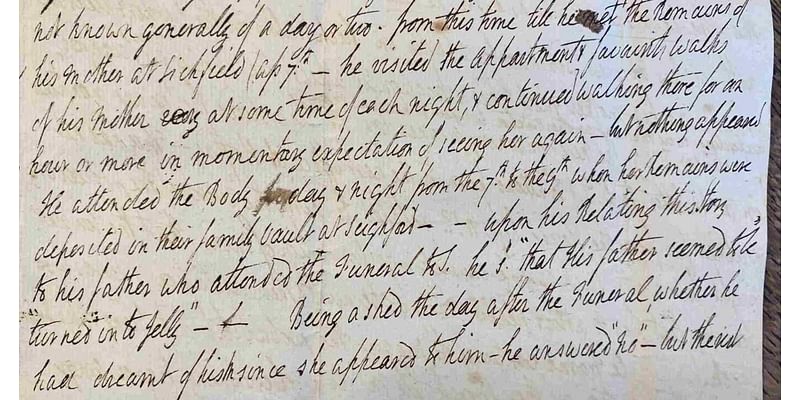 not known generally of a day or two. from this time till he met the Remains of
his Mother at Lichfield (ap 7th — he visited the appartment & favourite walks
of his Mother at some time of each night, & continued walking there for an
hour or more in momentary expectation of seeing her again — but nothing appeared
He attended the Body day & night from the 7th to the 9th when her Remains were
deposited in their family vault at Seighford — — upon his Relating this Story
to his father who attended the Funeral to S. he S. "that His father seemed to be
"turned in to Jelly" — Being asked the day after the Funeral, whether he
had dreamt of since she appeared to him — he answered "No" — but the